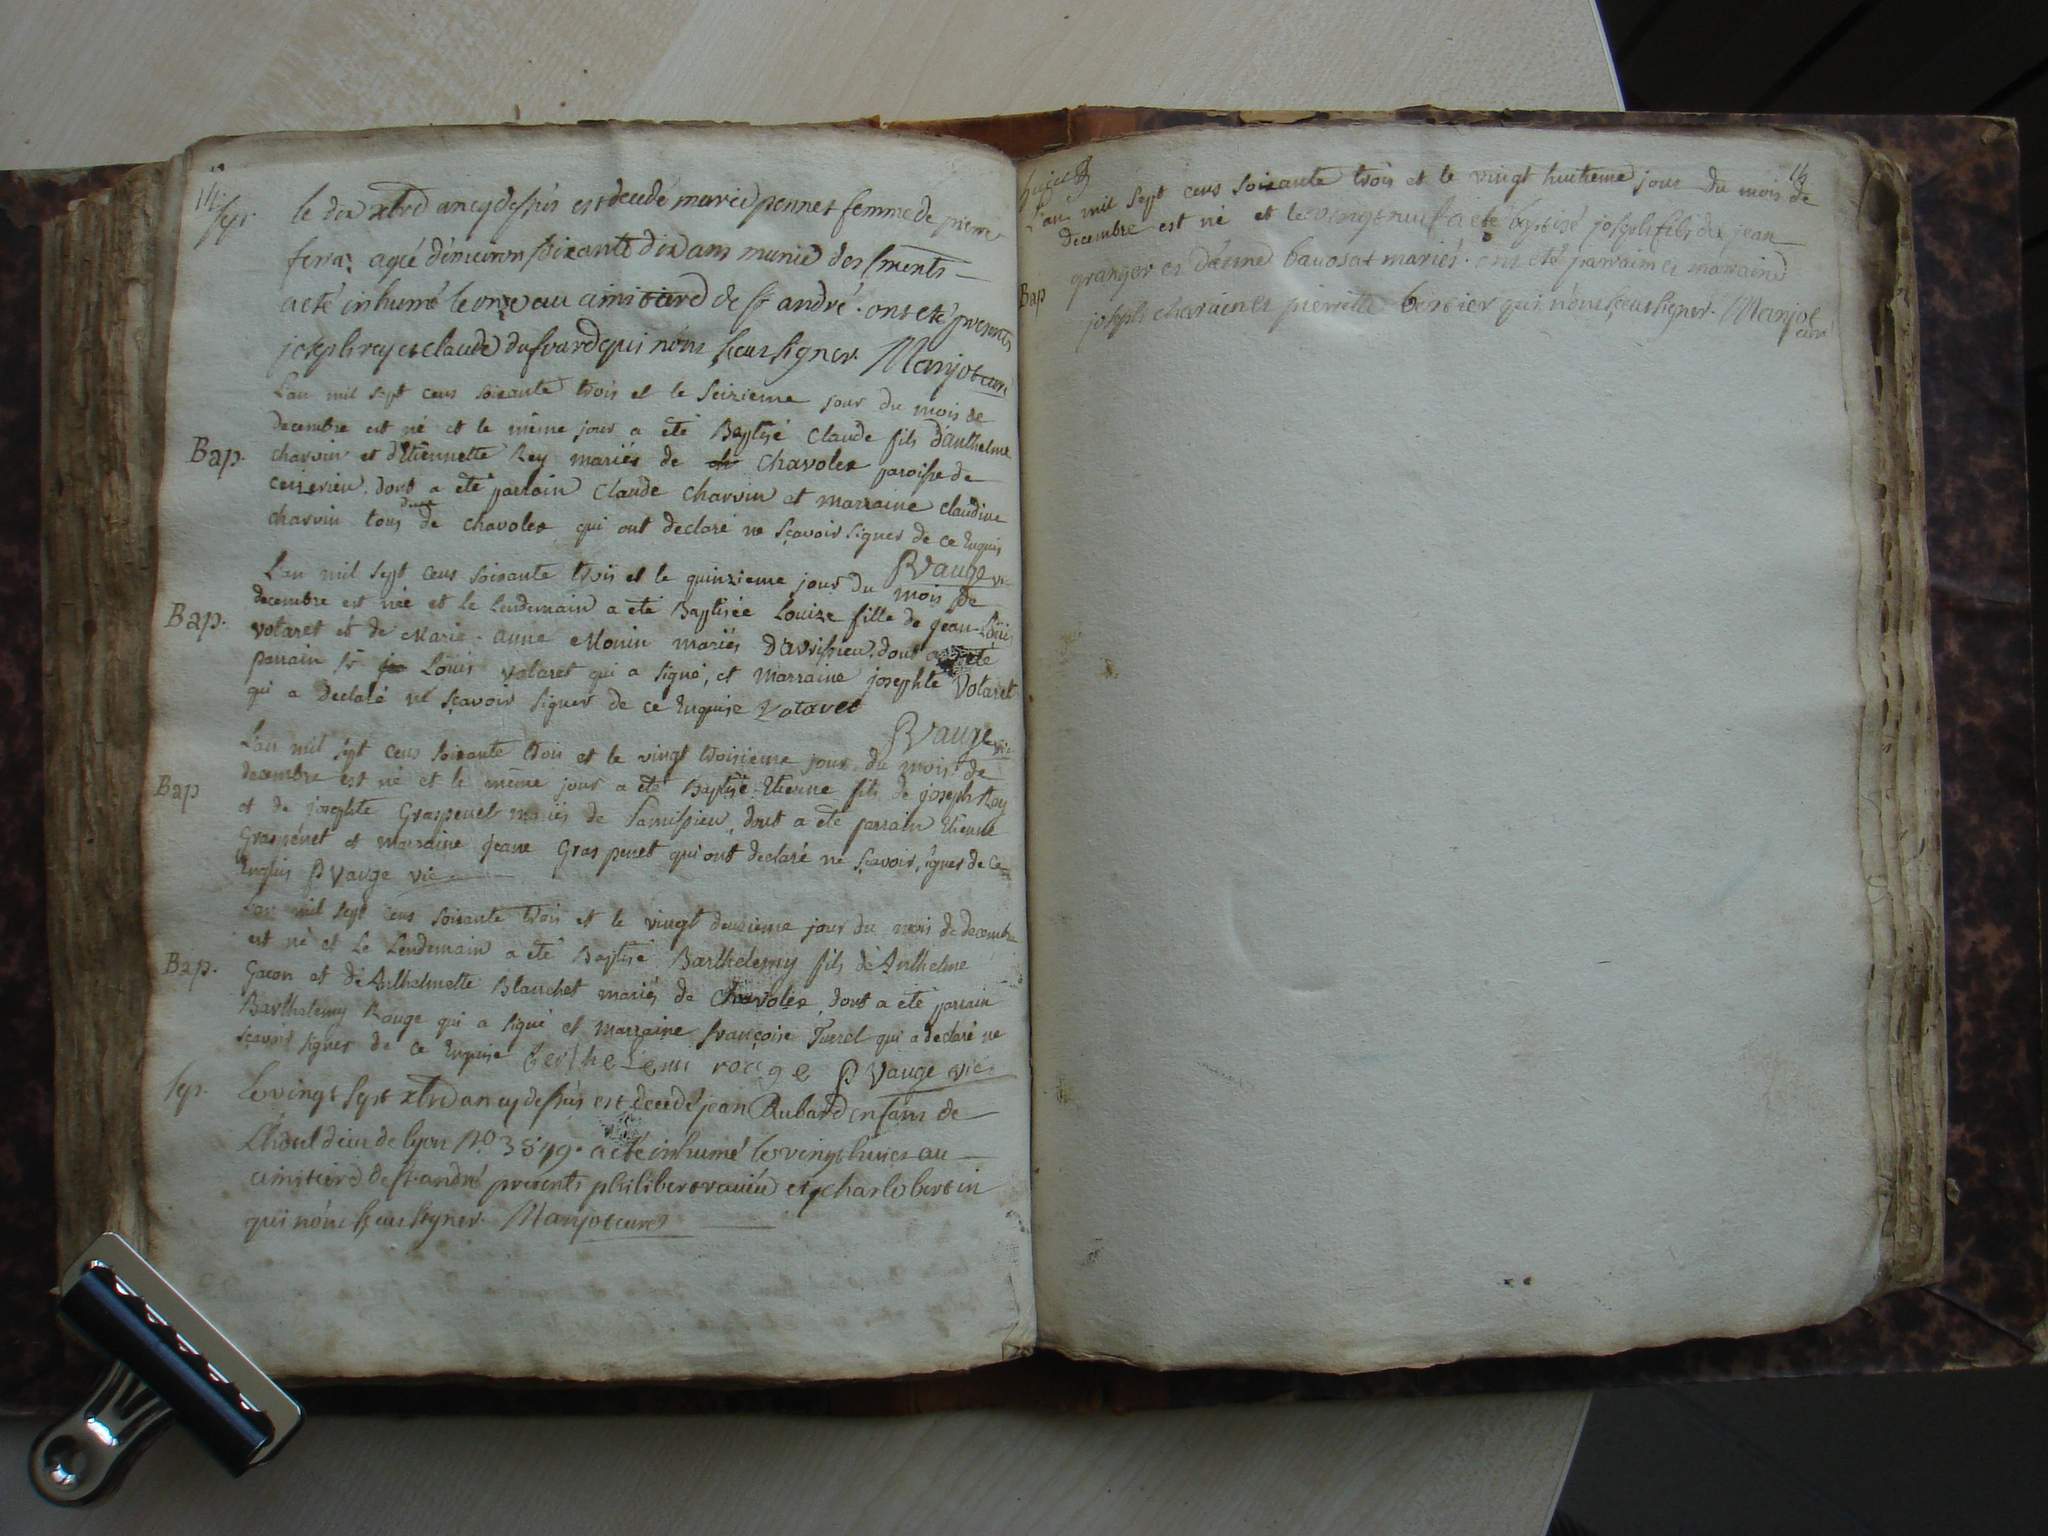 14
Sep. le dix xbre an cy dessus est decedé marie pennet femme de pierre
ferra agée d'environ soixante dix ans munie des sments
a eté inhumé le onze au cimitiere de st andré. ont eté presents
joseph rey et claude dufourd qui n'ont sceu signer. Marjot curé
L'an mil sept cens soixante trois et le seizieme jour du mois de
decembre est né et le même jour a eté Baptisé Claude fils d'anthelme
Bap. charvin et d'Etiennette Rey mariés de ch Chavolex paroisse de
ceizerieu. dont a eté parrain Claude Charvin et marraine claudine
charvin tous deux de chavolex qui ont declaré ne sçavoir signer de ce Enquis
PVauge vic
L'an mil sept cens soixante trois et le quinzieme jour du mois de
decembre est née et le lendemain a eté Baptisée Louize fille de jean-Loüis
Bap. votaret et de Marie-anne Monin mariés d'avrissieu, dont a eté
parrain sr Loüis votaret qui a signé, et marraine josephte Votaret
qui a declaré ne sçavoir signer de ce Enquise Votaret
PVauge vic
L'an mil sept cens soixante trois et le vingt troisieme jour du mois de
decembre est né et le même jour a eté Baptisé Etienne fils de joseph Roy
Bap et de josephte Graspenet mariés de Samissieu, dont a eté parrain Etienne
Graspenet et marraine jeane Graspenet qui ont declaré ne sçavoir signer de ce
Enquis PVauge vic
L'an mil sept cens soixante trois et le vingt deuzieme jour du mois de decembre
est né et le lendemain a eté Baptisé Barthelemy fils de Anthelme
Bap. Gacon et de Anthelmette Blanchet mariés de Chavolex, dont a eté parrain
Barthelemy Rouge qui a signé et marraine françoise Turrel qui a declaré ne
sçavoir signer de ce Enquise berthelemi rouge PVauge vic
Sep. Le vingt sept xbre an cy dessus est decedé jean Rubard enfans de
L'hotel dieu de lyon No. 3549. a eté inhumé le vingt huict au
cimitiere de st. andré presents philibert ravier et charle bertin
qui n'ont sceu signer. Marjot curé
14
L'an mil sept cens soixante trois et le vingt huitieme jour du mois de
decembre est né et le vingt neuf a eté baptisé joseph fils de jean
Bap granger et d'anne bavosat mariés. ont eté parrain et marraine
joseph charain et pierrette bertier qui n'ont sceu signer. Marjot
curé